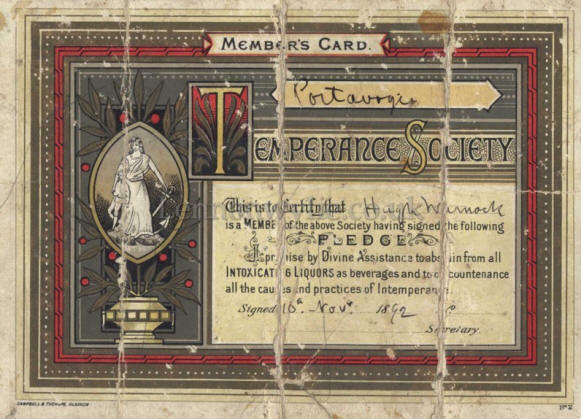 MEMBER'S CARD.
Portavogie
TEMPERANCE SOCIETY
This is to Certify that Hugh Warnock
is a MEMBER of the above Society having signed the following
PLEDGE
I promise by Divine Assistance to abstain from all
INTOXICATING LIQUORS as beverages and to discountenance
all the causes and practices of Intemperance.
Signed 16th Novr. 1892
Secretary.
CAMPBELL & THOLANE, GLASGOW
Nº 2